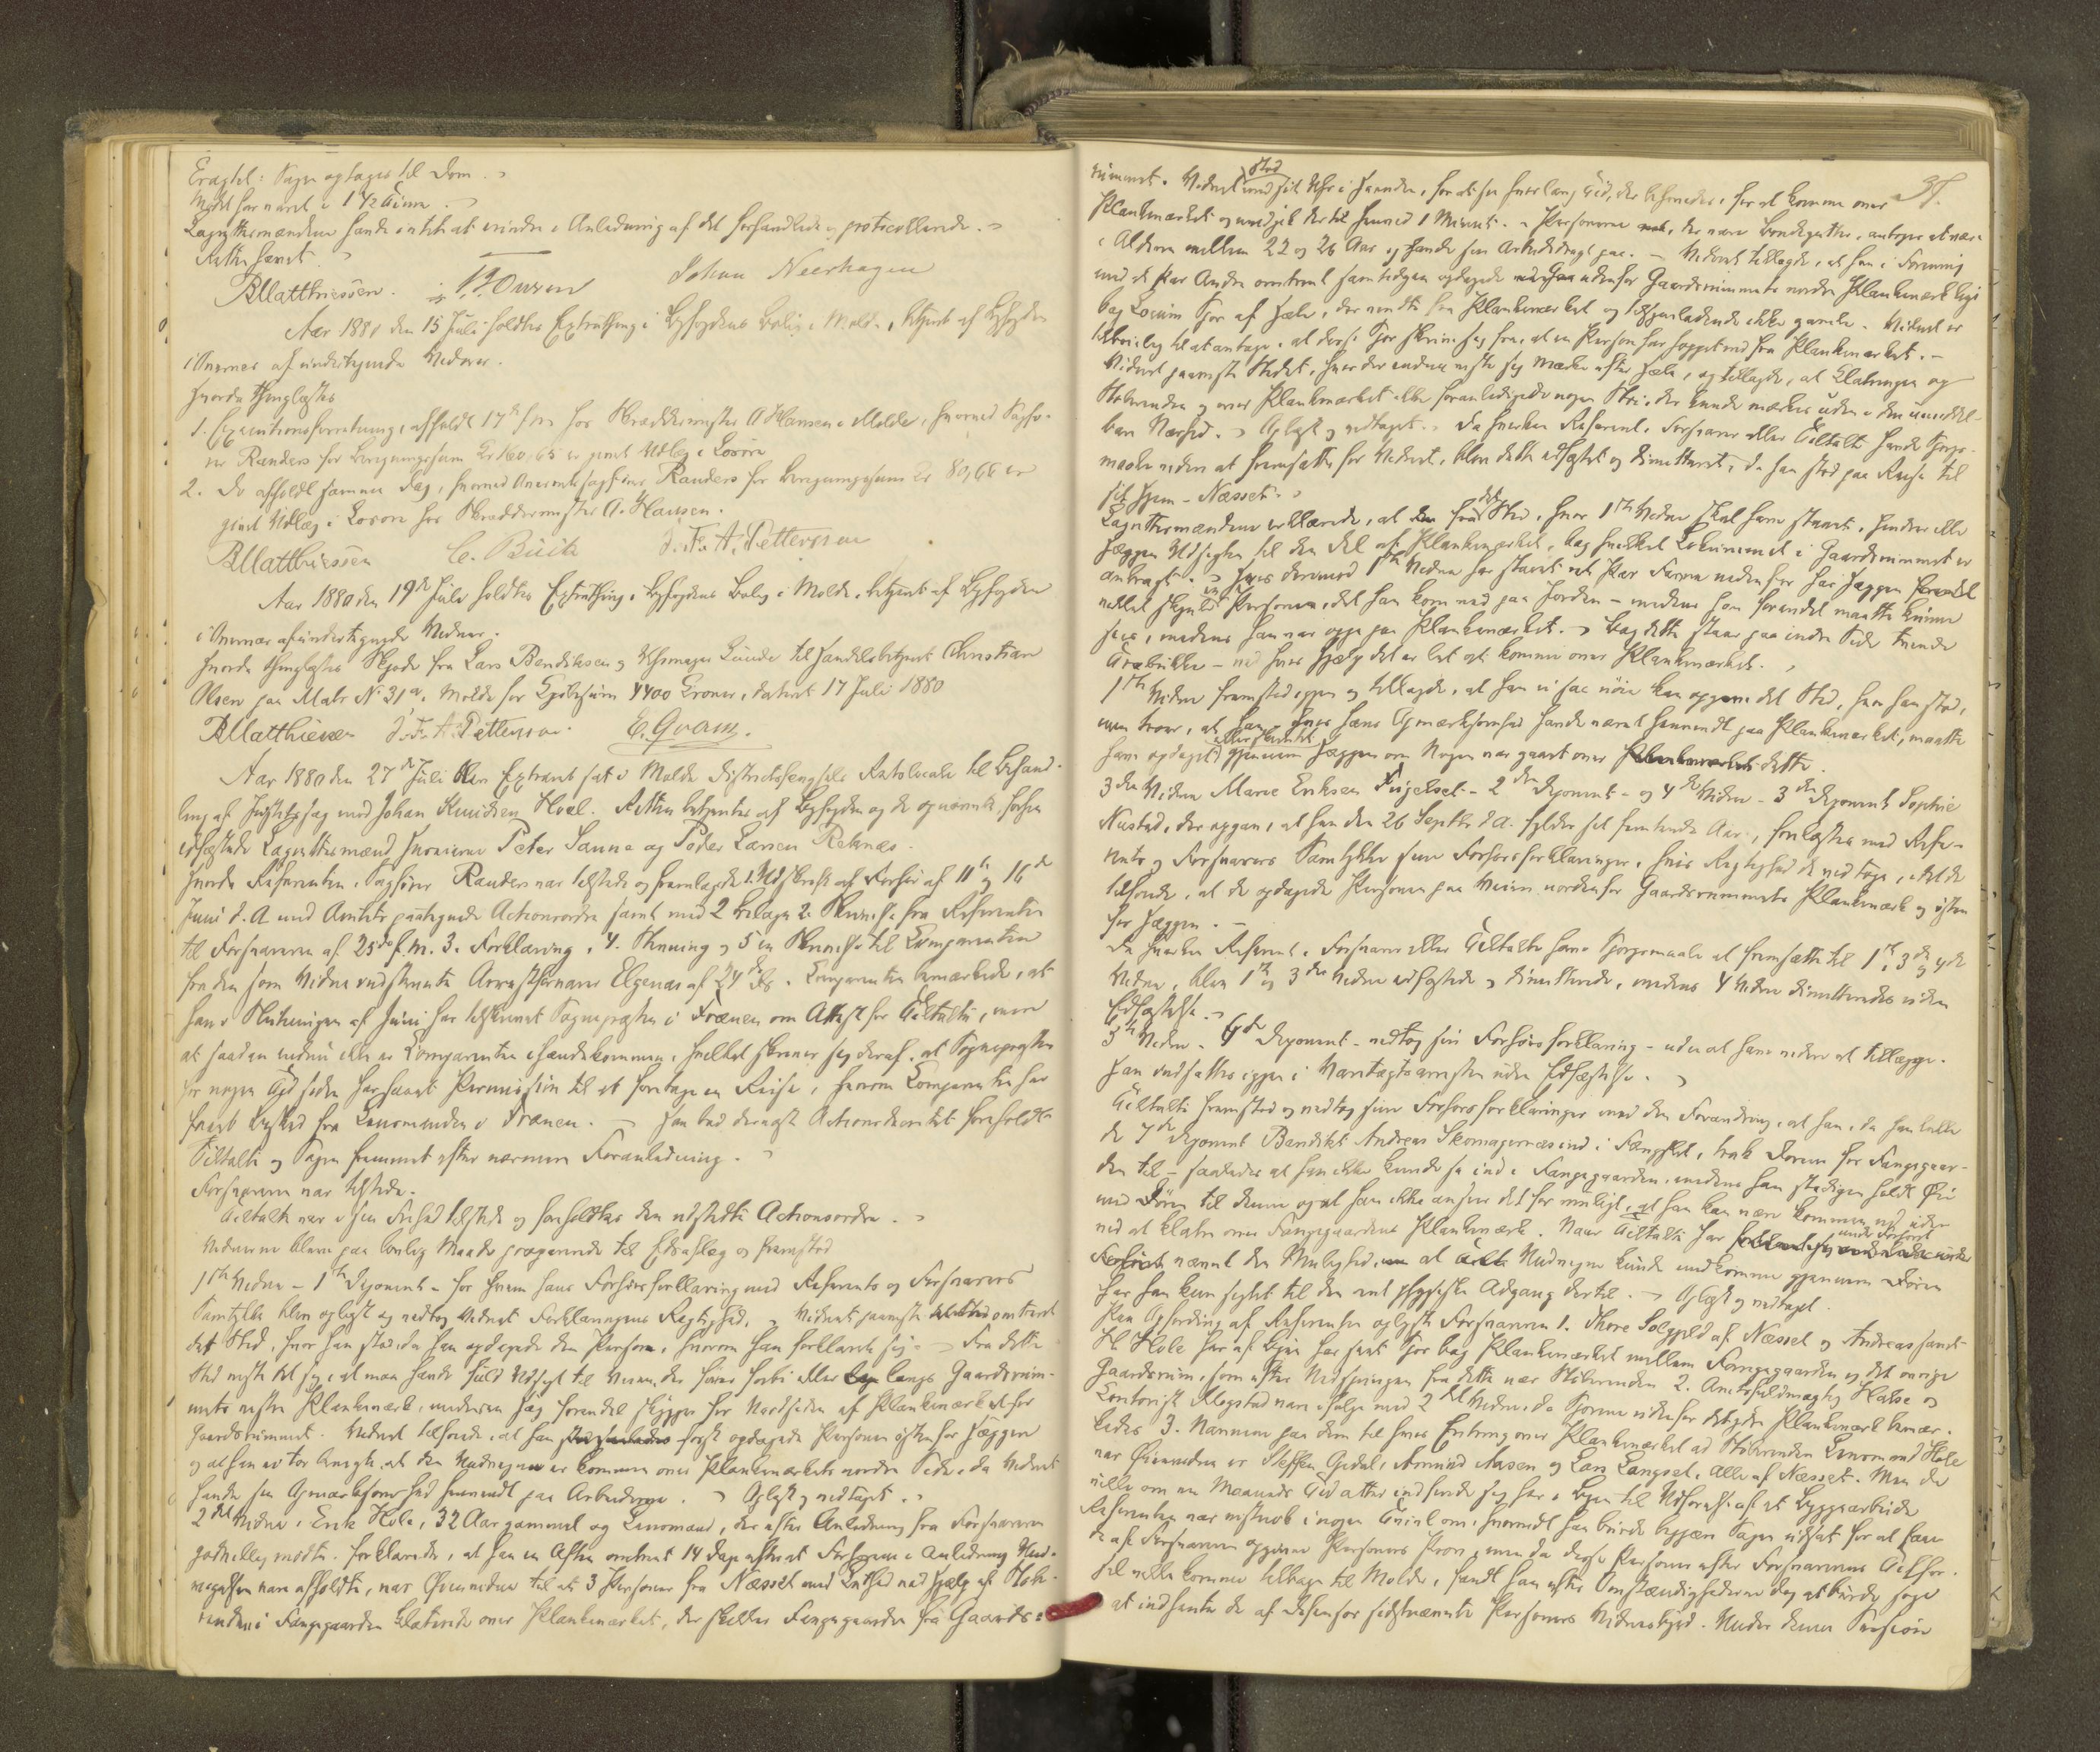 Eragtet: Sagen optages til Dom.
Mødet har varet i 1 1/2 Time.
Lagrettemændene havde intet at erindre i Anledning af det forhandlede og protocollerede.
Retten hævet
BMatthiessen. Johan Neerhagen
Aar 1880 den 15 Juli holdtes Extrathing i Byfogdens Bolig i Molde, betjent af Byfogden
i Overvær af undertegnede Vidner.
Hvorda thinglæstes
1. Executionsforretning, afholdt 17de f.m. hos Skræddermester A Hansen i Molde, hvorved Sagfø-
rer Randers for beregningssum Kr 160,65 er givet Udlæg i Løsøre
2. Do afholdt samme Dag, hvorved Overretssagfører Randers for beregningssum Kr 80,66 er
givet Udlæg i Løsøre hos Skræddermester A. Hansen.
BMatthiessen C. Buck J. F. A. Petterson
Aar 1880 den 19de Juli holdtes Extrathing i Byfogdens Bolig i Molde, betjent af Byfogden
i Overvær af undertegnede Vidner.
Hvorda thinglæstes Skjøde fra Lars Bendiksen og Uhrmager Lunde til Handelsbetjent Christian
Olsen paa Matr N 31a, Molde for Kjøbesum 4400 Kroner, dateret 17 Juli 1880
BMatthiessen J. F. A. Petterson. E. Qvam.
Aar 1880 den 27de Juli blev Extraret sat i Molde Districtsfængsels Retslocale til Behand-
ling af Justitssag mod Johan Knudsen Hoel. Retten betjentes af Byfogden og de opnævnte, forhen
edfæstede Lagrettesmænd Peter Sanne og Peder Larsen Reknæs.
Hvorda Referenten, Sagfører Randers var tilstede og fremlagde 1. Udskrift af Forhør af 11te og 16de
Juni d. A med Amtets paategnede Actionsordre samt med 2 bilage 2. Skrivelse fra Referenten
til Forsvareren af 25de f.m. 3. Forklaring, 4. Stevning og 5 en Skrivelse til Comparenten
fra den som Vidne indstevnte Arrestforvarer Elgenæs af 24de ds. Comparenten bemærkede, at
han i Slutningen af Juni har tilskrevet Sognepræsten i Frænen om Attest for Tiltalte, men
at saadan endnu ikke er Comparenten ihændekommen, hvilket skriver sig deraf, at Sognepræsten
for nogen Tid siden har havt Permission til at foretage en Reise, hvorom Comparenten har
faaet Besked fra Lensmanden i Frænen. Han bad dernæst Actionsdecretet foreholdt
Tiltalte og Sagen fremmet efter nærmere Foranledning.
Forsvareren var tilstede.
Tiltalte var i sin Frihed tilstede og foreholdtes den udstedte Actionsordre.
Vidnerne bleve paa lovlig Maade præparerede til Edsaflæg og fremstod
1ste Vidne - 1ste Deponent - for hvem hans Forhørsforklaring med Referents og Forsvarers
Samtykke blev oplæst og vedtog Vidnet Forklaringens Rigtighed. Vidnet paaviste omtrent
det Sted, hvor han stod, da han opdagede den Person, hvorom han forklarede sig. Fra dette
Sted viste det sig, at man havde fuld Udsigt til Veien, der fører forbi eller langs Gaardsrum-
mets vestre Plankeværk, medens en Hæg forøvrigt skygger for Nordsiden af Plankeværket for
Gaardsrummet. Vidnet tilføiede, at han først opdagede Personen østenfor Hæggen
og at han ei tør benægte, at den Undvegne er kommen over Plankeværkets nordre Side, da Vidnet
havde sin Opmærksomhed henvendt paa Arbeiderne. Oplæst og vedtaget.
2det Vidne, Erik Hole, 32 Aar gammel og Lensmand, der efter Anledning fra Forsvareren
godvillig mødte, forklarede, at han en Aften omtrent 14 Dage efterat Forhørene i Anledning Und-
vigelsen vare afholdte, var Øienvidne til at 3 Personer fra Næsset med Lethed ved Hjælp af Stok-
enden i Fangegaarden klatrede over Plankeværket, der skiller Fangegaarden fra Gaards-
37.
rummet. Vidnet stod med sit Uhr i Haanden, for at se hvor lang Tid, der behøvedes for at komme over
Plankeværket og medgik dertil henved 1 Minut. Personerne, der vare Bondegutter, antoges at være
i Alderen mellem 22 og 26 Aar og havde sin Arbeidsdragt paa. - Vidnet tillagde, at han i Forening
med et Par Andre omtrent samtidigen opdagede udenfor Gaardsrummets nordre Plankeværk lige
bag Locum Spor af Hæle, der vendte fra Plankeværket og tilsyneladende ikke gamle. Vidnet er
tilbøielig til at antage, at disse Spor skrive sig fra, at en Person har hoppet ned fra Plankeværket. -
Vidnet paaviste Stedet, hvor der endnu viste sig Mærke efter Hæle, og tillagde, at Klatringen og
Stokenden og over Plankeværket ikke foranledigede nogen Støi, der kunde mærkes uden i den umiddel-
bare Nærhed. Oplæst og vedtaget. Da hverken Referent, Forsvarer eller Tiltalte havde Spørgs-
maal videre at fremsætte for Vidnet, blev dette edfæstet og dimitteret, da han stod paa Reise til
sit Hjem - Næsset.
Lagrettesmændene erklærede, at fra det Sted, hvor 1ste Vidne skal have staaet, hindrer ikke
Hæggen Udsigten til den Del af Plankeværket, bag hvilket Locummet i Gaardsrummet er
anbragt. Hvis derimod 1ste Vidne har staaet et Par Favne nedenfor har Hæggen
dækket skjult Personen, idet han kom ned paa Jorden - medens han forøvrigt maatte kunne
sees, medens han var oppe paa Plankeværket. Bag dette staar paa indre Side tvende
Træbukke - ved hvis Hjælp det er let at komme over Plankeværket.
1ste Vidne fremstod igjen og tillagde, at han ei saa nøie kan opgive det Sted, hvor han stod,
men tror, at han, hvis hans Opmærksomhed havde været henvendt paa Plankeværket, maatte
have opdaget gjennem Hæggen om Nogen var gaaet over dette.
3die Vidne Marie Eriksen Fugelset - 2den Deponent - og 4de Vidne - 3die Deponent Sophie
Nustad, der opgav, at hun den 26 Septbr d. A. fylder sit femtende Aar, forelæstes med Refe-
rents og Forsvarers Samtykke sine Forhørsforklaringer, hvis Rigtighed de vedtoge, idet de
tilføiede, at de opdagede Personen paa Veien nordenfor Gaardsrummets Plankeværk og østen
for Hæggen. -
Da hverken Referent, Forsvarer eller Tiltalte havde Spørgsmaal at fremsætte til 1ste, 3die og 4de
Vidne, blev 1ste og 3die Vidne edfæstede og dimitterede, medens 4 Vidne dimitteredes uden
Edfæstelse.
5te Vidne - 4de Deponent - vedtog sin Forhørsforklaring - uden at have videre at tillægge.
Han indsattes igjen i Varetægtsarresten uden Edfæstelse.
Tiltalte fremstod og vedtog sine Forhørsforklaringer med den Forandring, at han, da han lukke-
de 7de Deponent Bendikt Andreas Skomagernæs ind i Fængslet, trak Døren for Fangegaar-
den til - saaledes at han ikke kunde se ind i Fangegaarden, medens han stadigen holdt Øie
med Døren til denne og at han ikke anser det for muligt, at han kan være kommen ud uden
ved at klatre over Fangegaardens Plankeværk. Naar Tiltalte har under Forhøret
nævnt den Mulighed, at Undvegne kunde undkomme gjennem Døren
har han kun sigtet til den rent physiske Adgang dertil. Oplæst og vedtaget.
Paa Opfordring af Referenten oplyste Forsvareren 1. Thore Solgjeld af Næsset og Andreas samt
Ole Hole her af Byen har seet Spor bag Plankeværket mellem Fangegaarden og det øvrige
Gaardsrum, som efter Nedspringen fra dette nær Stokenden 2. Amtsfuldmægtig Hasse og
Contorist Megstad vare ifølge med 2det Vidne, da Sporene udenfor det ydre Plankeværk bemær-
kedes 3. Navnene paa dem til hvis Entring over Plankeværket ad Stokenden Lensmand Hole
var Øienvidne er Steffen Gudal, Amund Aasen og Lars Langset, alle af Næsset. Men de
ville om en Maaneds Tid atter indfinde sig her i Byen til Udførelse af et Byggearbeide
Referenten var vistnok i nogen Tvivl om, hvorvidt han burde begjære Sagen udsat for at faae
de af Forsvareren opgivne Personers Prov, men da disse Personer efter Forsvarerens Tilfør-
sel ville komme tilbage til Molde, fandt han efter Omstændighederne dog at burde søge
at indhente de af Defensor sidstnævnte Personers Vidnesbyrd. Under denne Session